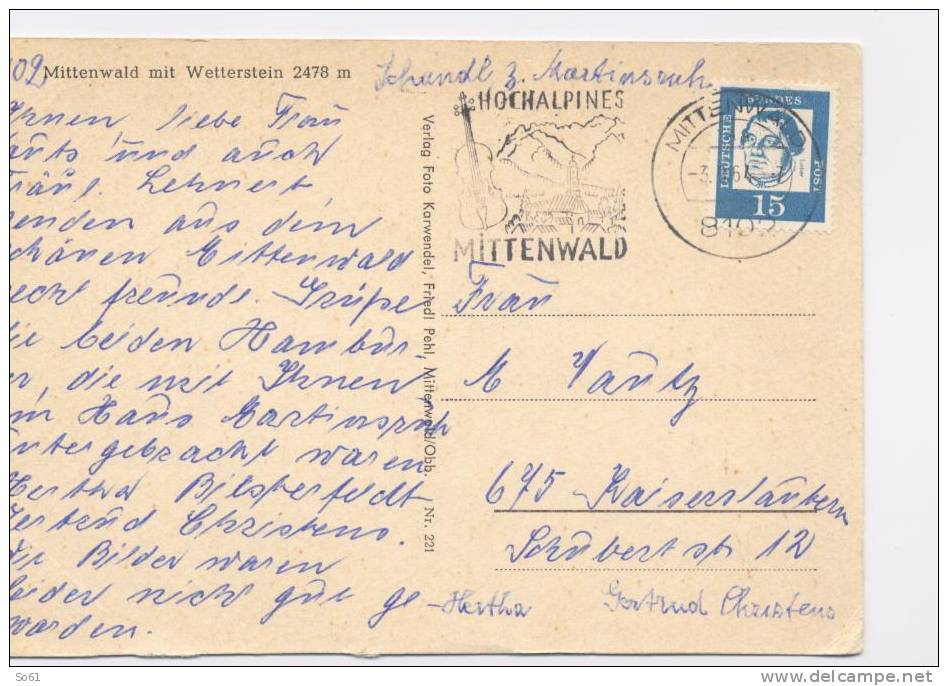 Mittenwald mit Wetterstein 2478 m
Ihnen, liebe Frau
und auch
Fräul. Lehnert
senden aus dem
schönen Mittenwald
recht freundl. Grüße
die beiden Hambur-
ger, die mit Ihnen
im Haus Martinsruh
untergebracht waren
Hertha
Christens.
die Bilder waren
leider nicht gut ge-
worden.
Verlag Foto Karwendel, Friedl Pehl, Mittenwald/Obb. Nr. 221
z. Martinsruh
HOCHALPINES
MITTENWALD
MITTENWALD
8102
DEUTSCHE BUNDESPOST
15
Frau
M
675 Kaiserslautern
Schubertstr 12
Hertha Gertrud Christens
So61
©delcampe.net